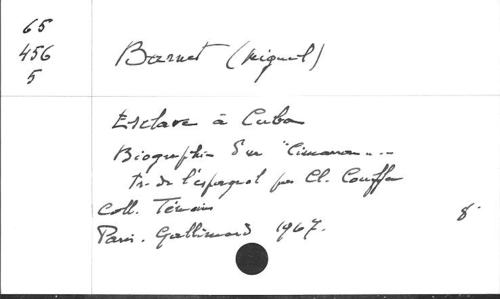 65
456
5
Barnet (Miguel)
Esclave à Cuba
Biographie d'un "Cimarron...
tr. de l'espagnol par Cl. Couffon
Coll. Témoins
Paris. Gallimard 1967.
8.